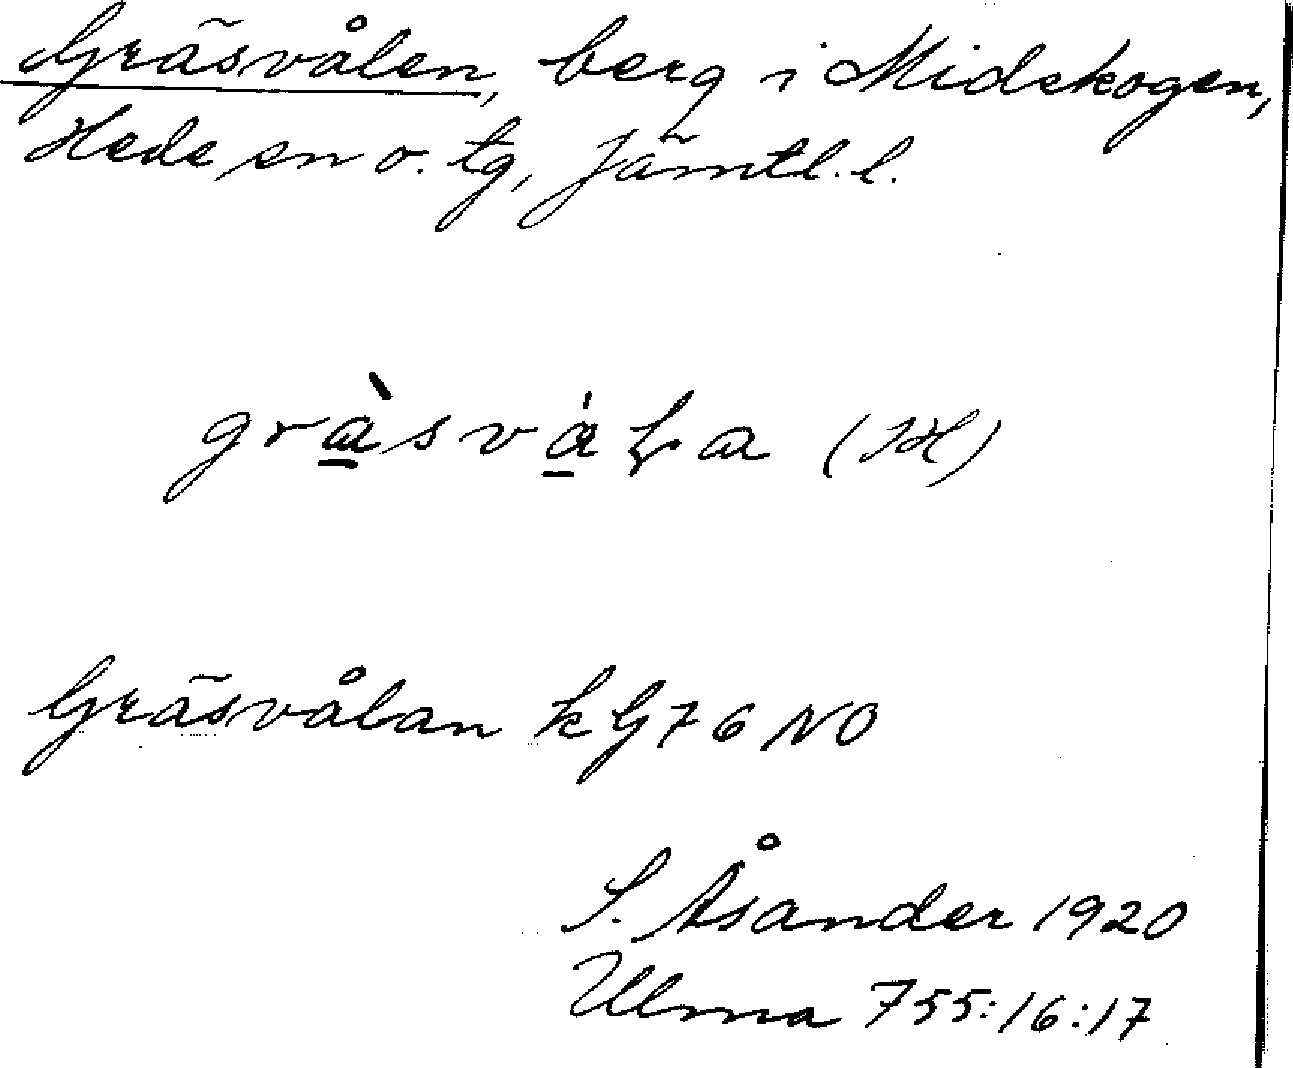 Gräsvålen, berg i Midskogen,
Hede sn o. tg, Jämtl. l.
(JH)
Gräsvålan kG76 NO
S. Åsander 1920
Ulma 755:16:17